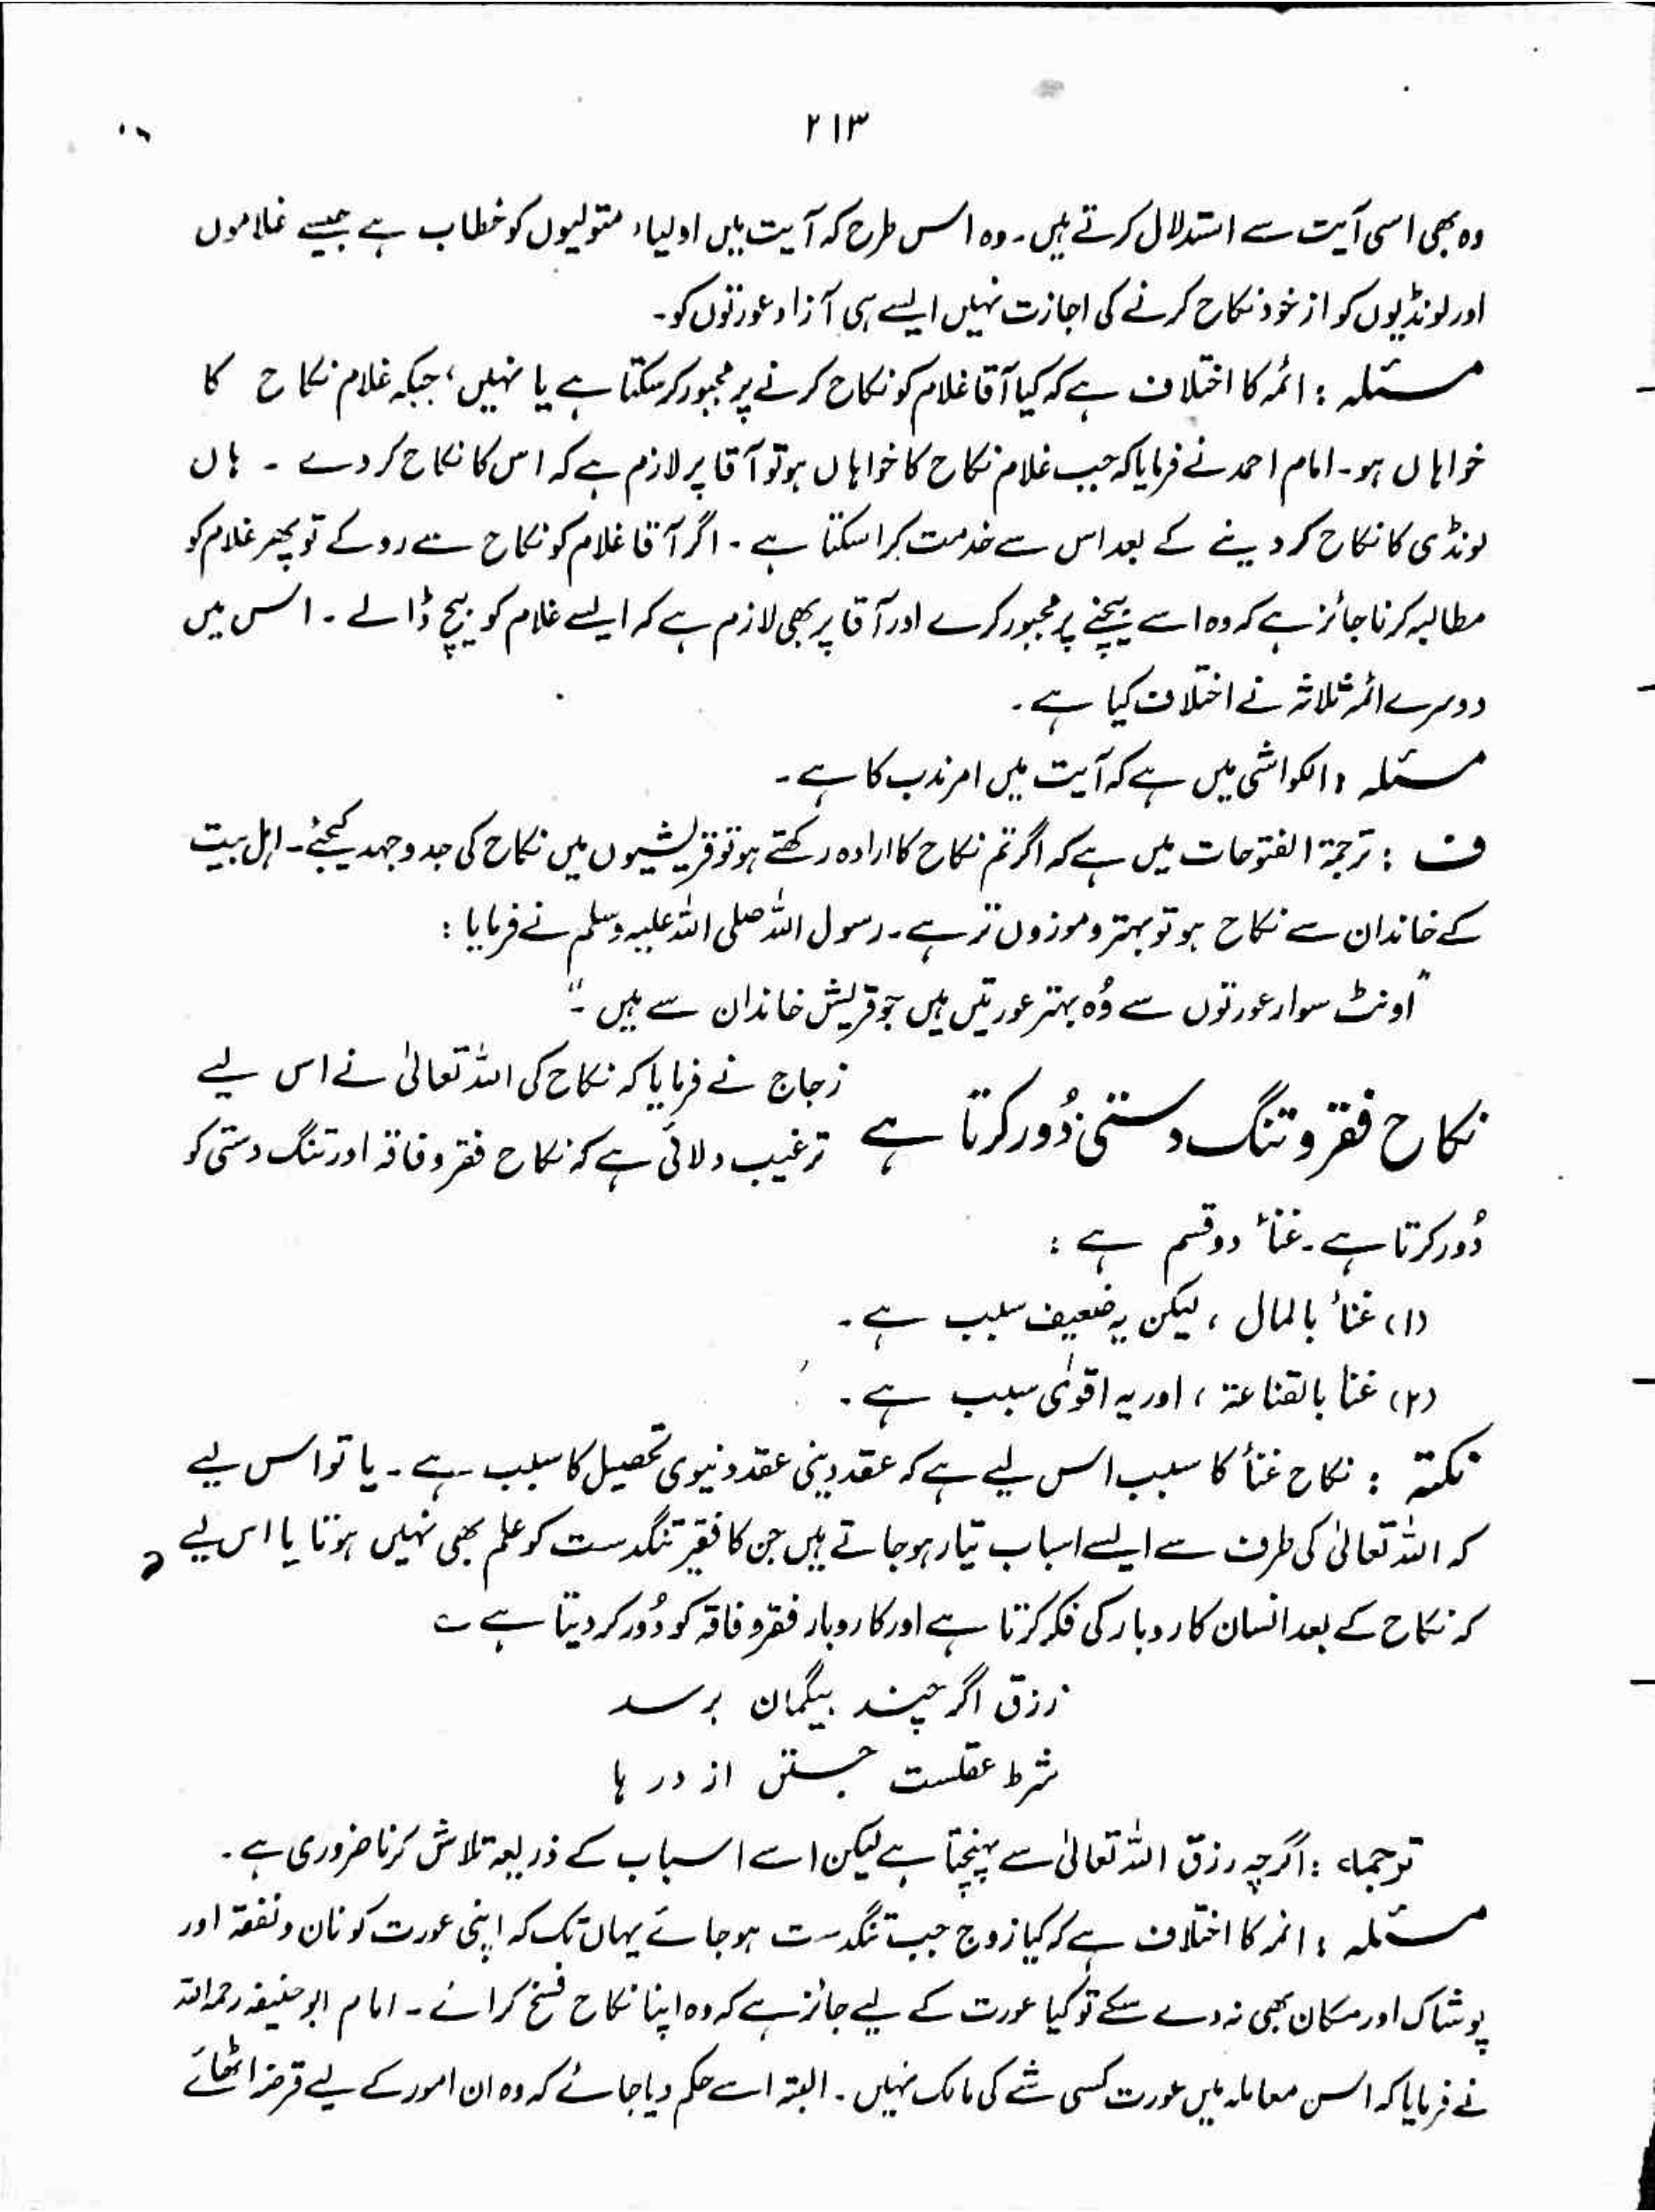 ۲۱۳
وہ بھی اسی آیت سے استدلال کرتے ہیں۔ وہ اس طرح کہ آیت میں اولیاء متولیوں کو خطاب ہے جیسے غلاموں
اور لونڈیوں کو از خود نکاح کرنے کی اجازت نہیں ایسے ہی آزاد عورتوں کو۔
مسئلہ : ائمہ کا اختلاف ہے کہ کیا آقا غلام کو نکاح کرنے پر مجبور کر سکتا ہے یا نہیں، جبکہ غلام نکاح کا
خواہاں ہو۔ امام احمد نے فرمایا کہ جب غلام نکاح کا خواہاں ہو تو آقا پر لازم ہے کہ اس کا نکاح کر دے ۔ ہاں
لونڈی کا نکاح کر دینے کے بعد اس سے خدمت کرا سکتا ہے ۔ اگر آقا غلام کو نکاح سے روکے تو پھر غلام کو
مطالبہ کرنا جائز ہے کہ وہ اسے بیچنے پر مجبور کرے اور آقا پر بھی لازم ہے کہ ایسے غلام کو بیچ ڈالے ۔ اس میں
دوسرے ائمہ ثلاثہ نے اختلاف کیا ہے ۔
مسئلہ : الکواشی میں ہے کہ آیت میں امر ندب کا ہے ۔
ف : ترجمۃ الفتوحات میں ہے کہ اگر تم نکاح کا ارادہ رکھتے ہو تو قریشیوں میں نکاح کی جدوجہد کیجئے ۔ اہل بیت
کے خاندان سے نکاح ہو تو بہتر و موزوں تر ہے ۔ رسول اللہ صلی اللہ علیہ وسلم نے فرمایا :
"اونٹ سوار عورتوں سے وُہ بہتر عورتیں ہیں جو قریش خاندان سے ہیں ۔"
نکاح فقر و تنگ دستی دُور کرتا ہے
زجاج نے فرمایا کہ نکاح کی اللہ تعالیٰ نے اس لیے
ترغیب دلائی ہے کہ نکاح فقر و فاقہ اور تنگ دستی کو
دُور کرتا ہے ۔ غناء دو قسم ہے :
(۱) غناء بالمال ، لیکن یہ ضعیف سبب ہے ۔
(۲) غنا بالقناعۃ ، اور یہ اقویٰ سبب ہے ۔
نکتہ : نکاح غنأ کا سبب اس لیے ہے کہ عقد دینی عقد دنیوی تحصیل کا سبب ہے ۔ یا تو اس لیے
کہ اللہ تعالیٰ کی طرف سے ایسے اسباب تیار ہو جاتے ہیں جن کا فقیر تنگدست کو علم بھی نہیں ہوتا یا اس لیے
کہ نکاح کے بعد انسان کاروبار کی فکر کرتا ہے اور کاروبار فقر و فاقہ کو دُور کر دیتا ہے ؎
رزق اگر چند بیگمان برسد
شرط عقلست جستن از در ہا
ترجمہ : اگرچہ رزق اللہ تعالیٰ سے پہنچتا ہے لیکن اسے اسباب کے ذریعہ تلاش کرنا ضروری ہے ۔
مسئلہ : ائمہ کا اختلاف ہے کہ کیا زوج جب تنگدست ہو جائے یہاں تک کہ اپنی عورت کو نان و نفقہ اور
پوشاک اور مکان بھی نہ دے سکے تو کیا عورت کے لیے جائز ہے کہ وہ اپنا نکاح فسخ کرائے ۔ امام ابو حنیفہ رحمہ اللہ
نے فرمایا کہ اس معاملہ میں عورت کسی شے کی مالک نہیں ۔ البتہ اسے حکم دیا جائے کہ وہ ان امور کے لیے قرضہ اٹھائے